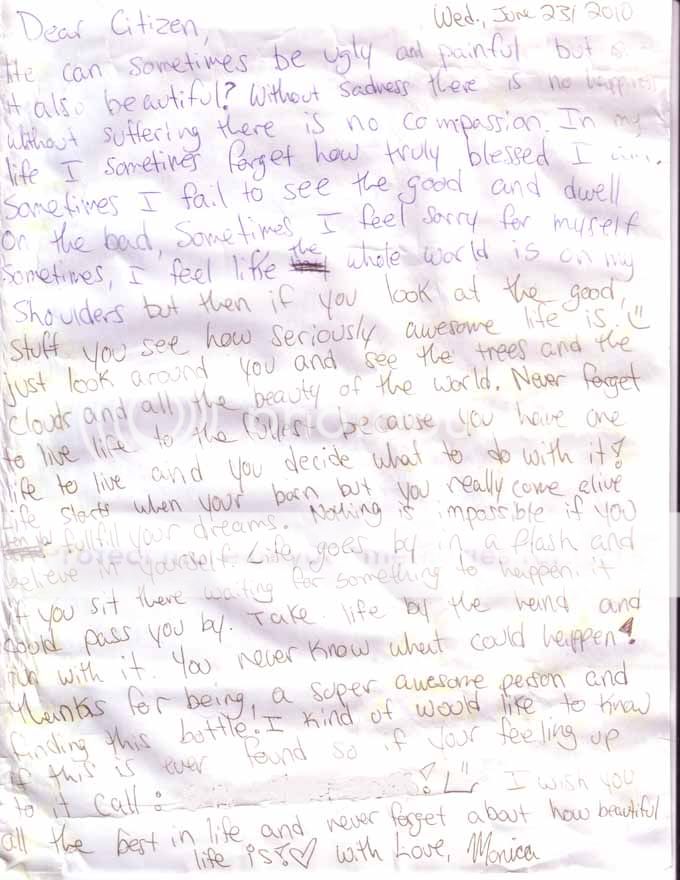 Wed., June 23/ 2010
Dear Citizen,
life can sometimes be ugly and painful but is
it also beautiful? Without sadness there is no happiness
without suffering there is no compassion. In my
life I sometimes forget how truly blessed I am.
Sometimes I fail to see the good and dwell
on the bad, Sometimes I feel sorry for myself
Sometimes, I feel like the whole world is on my
shoulders but then if you look at the good,
stuff you see how seriously awesome life is
just look around you and see the trees and the
clouds and all the beauty of the world. Never forget
to live life to the fullest because you have one
life to live and you decide what to do with it!
Life starts when your born but you really come alive
fullfill your dreams. Nothing is impossible if you
believe in yourself. Life goes by in a flash and
if you sit there waiting for something to happen it
could pass you by. Take life by the hand and
run with it. You never know what could happen!
thanks for being, a super awesome person and
finding this bottle. I kind of would like to know
if this is ever found so if your feeling up
to it call: I wish you
all the best in life and never forget about how beautiful
life is! ♡ With Love, Monica